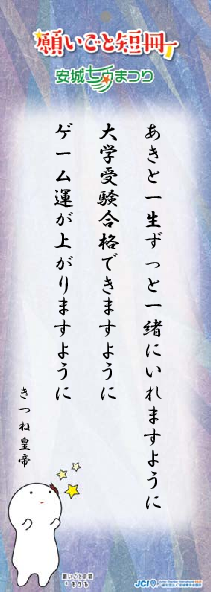 願いごと短冊
安城七夕まつり
あきと一生ずっと一緒にいれますように
大学受験合格できますように
ゲーム運が上がりますように
きつね皇帝
願いごと短冊
JCI